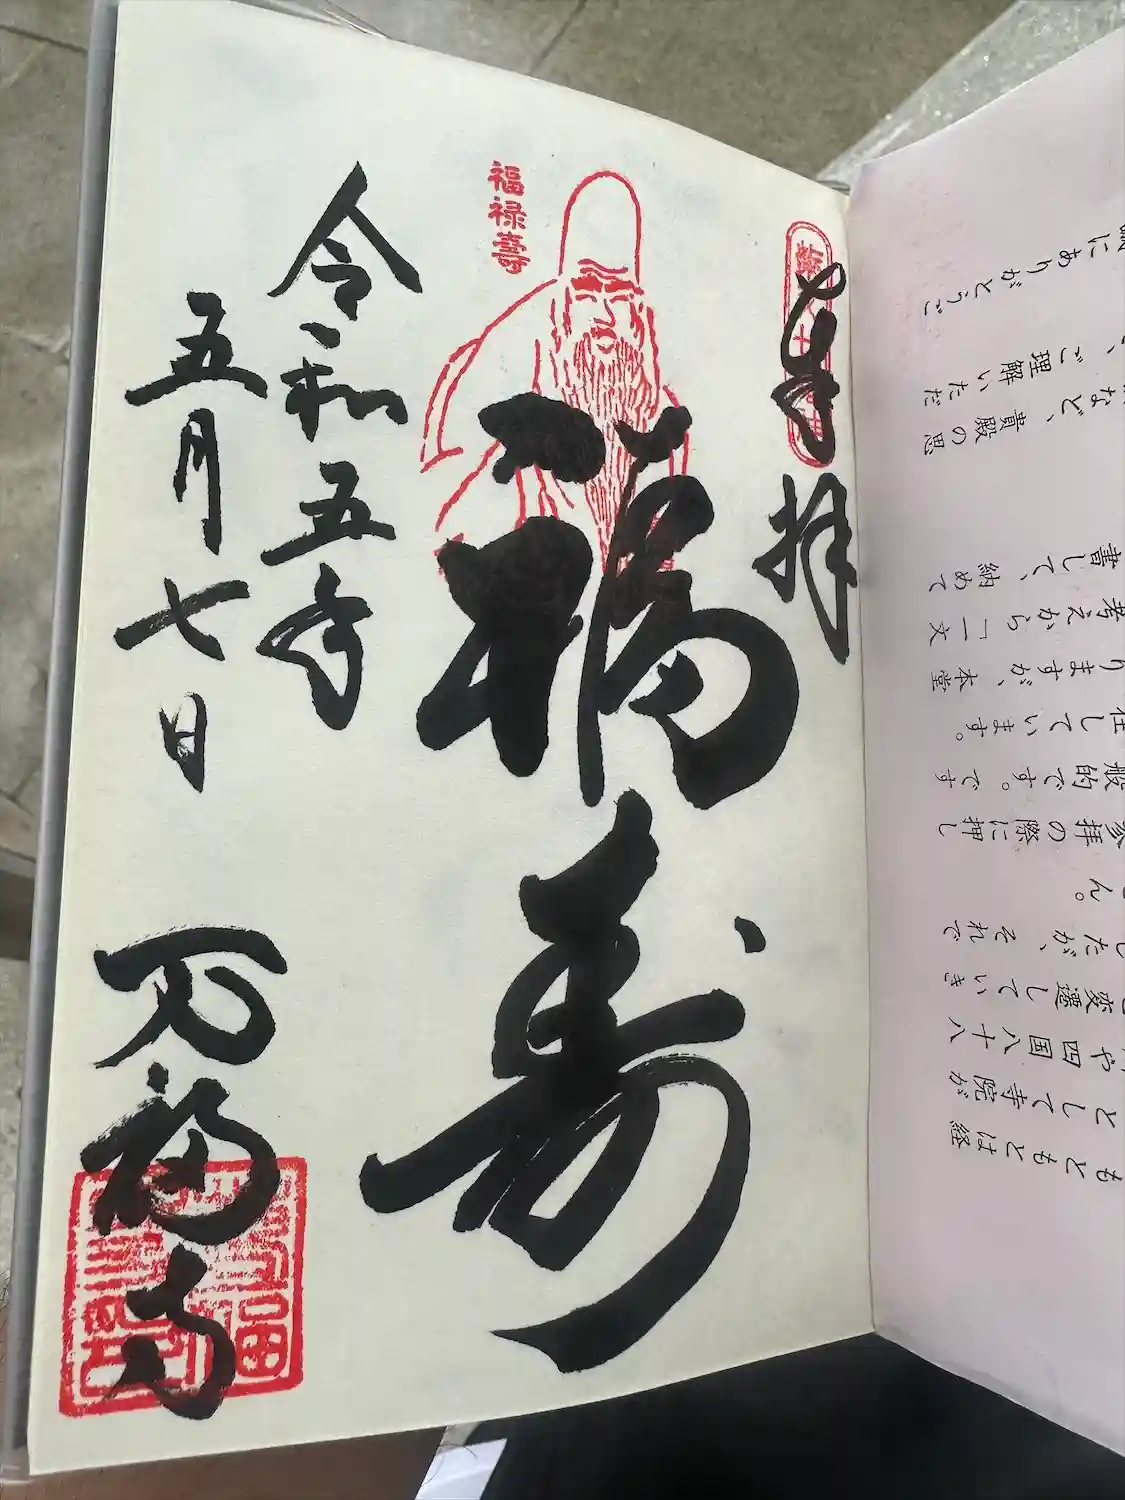 奉拝
福寿
福禄壽
令和五年
五月七日
万福寺
誠にありがとうご
、ご理解いただ
など、貴殿の思
書して、納めて
考えから「一文
りますが、本堂
任しています。
般的です。です
参拝の際に押し
ん。
したが、それで
変遷していき
や四国八十八
として寺院が
もともとは経